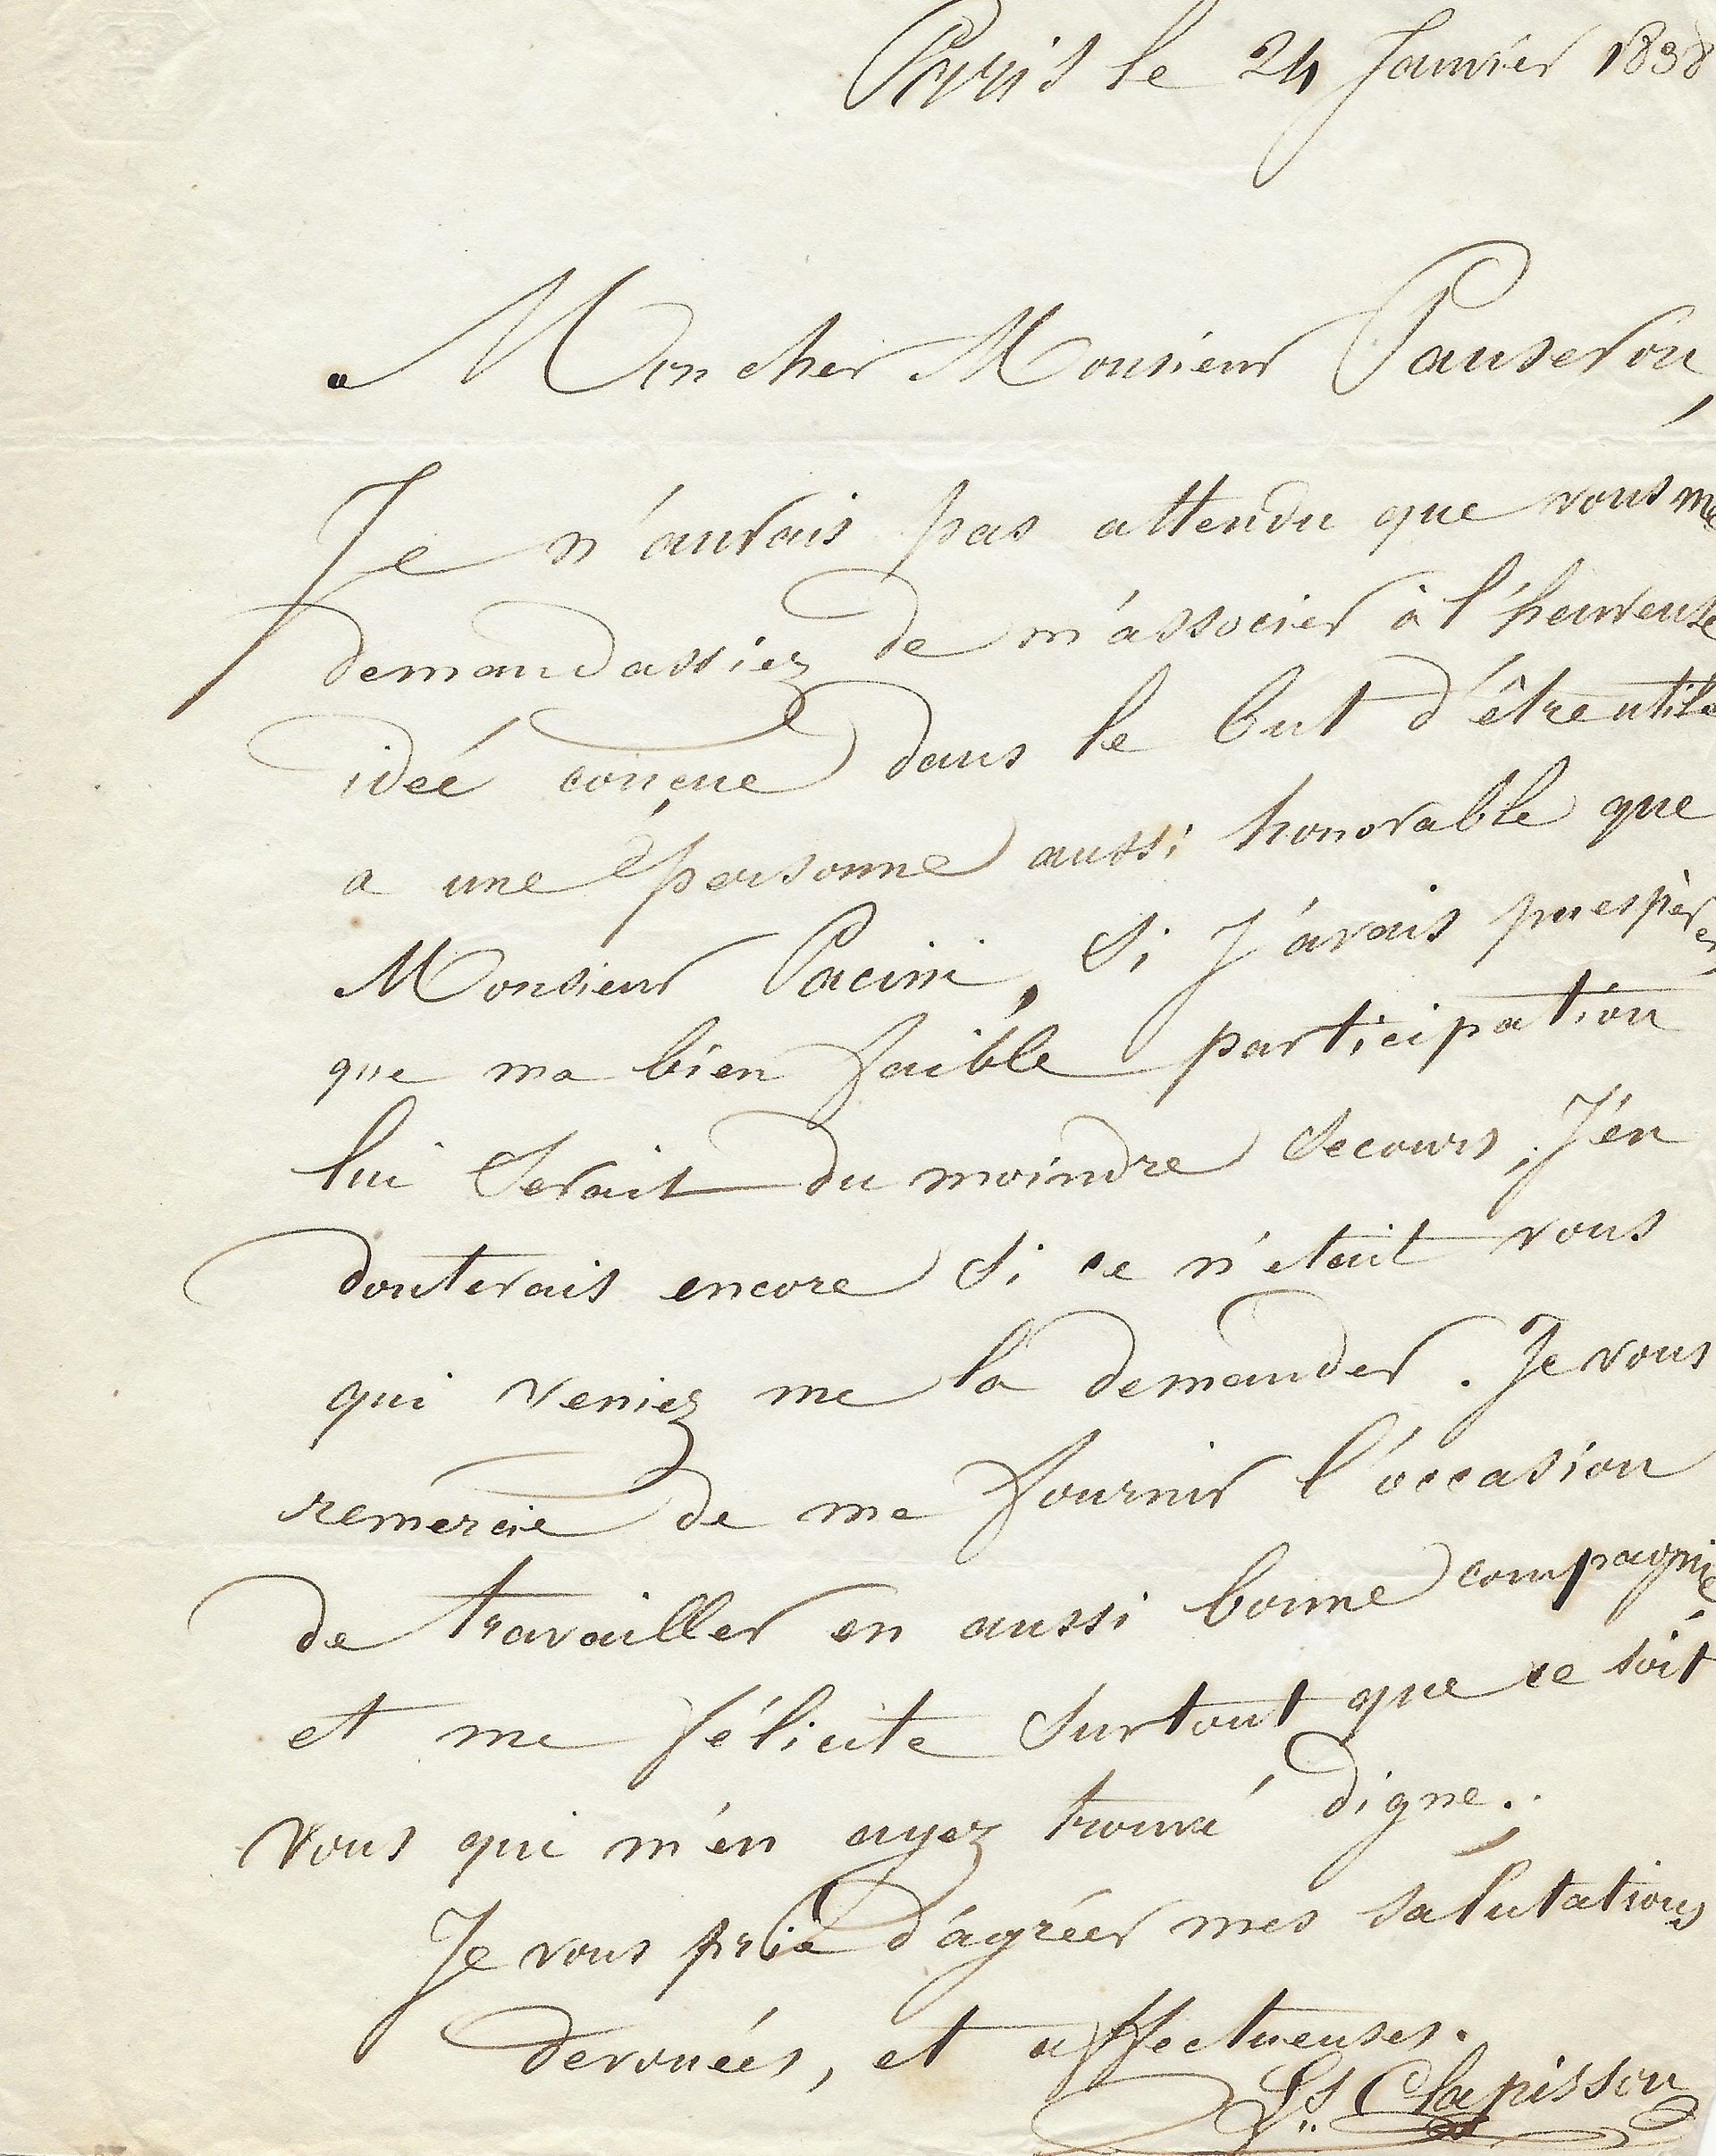 Paris le 24 Janvier 1838
Mon cher Monsieur Panseron,
Je n'aurais pas attendu que vous me
demandassiez de m'associer à l'heureuse
idée conçue dans le but d'être utile
a une personne aussi honorable que
Monsieur Pacini, Si J'avais pu espèrer
que ma bien faible participation
lui Serait du moindre Secours; J'en
douterais encore Si ce n'etait vous
qui veniez me la demander. Je vous
remercie de me fournir l'occasion
de travailler en aussi bonne compagnie
et me félicite Surtout que ce soit
vous qui m'en ayez trouvé digne.
Je vous prie d'agréer mes salutations
devouées, et affectueuses.
Ls. Clapisson